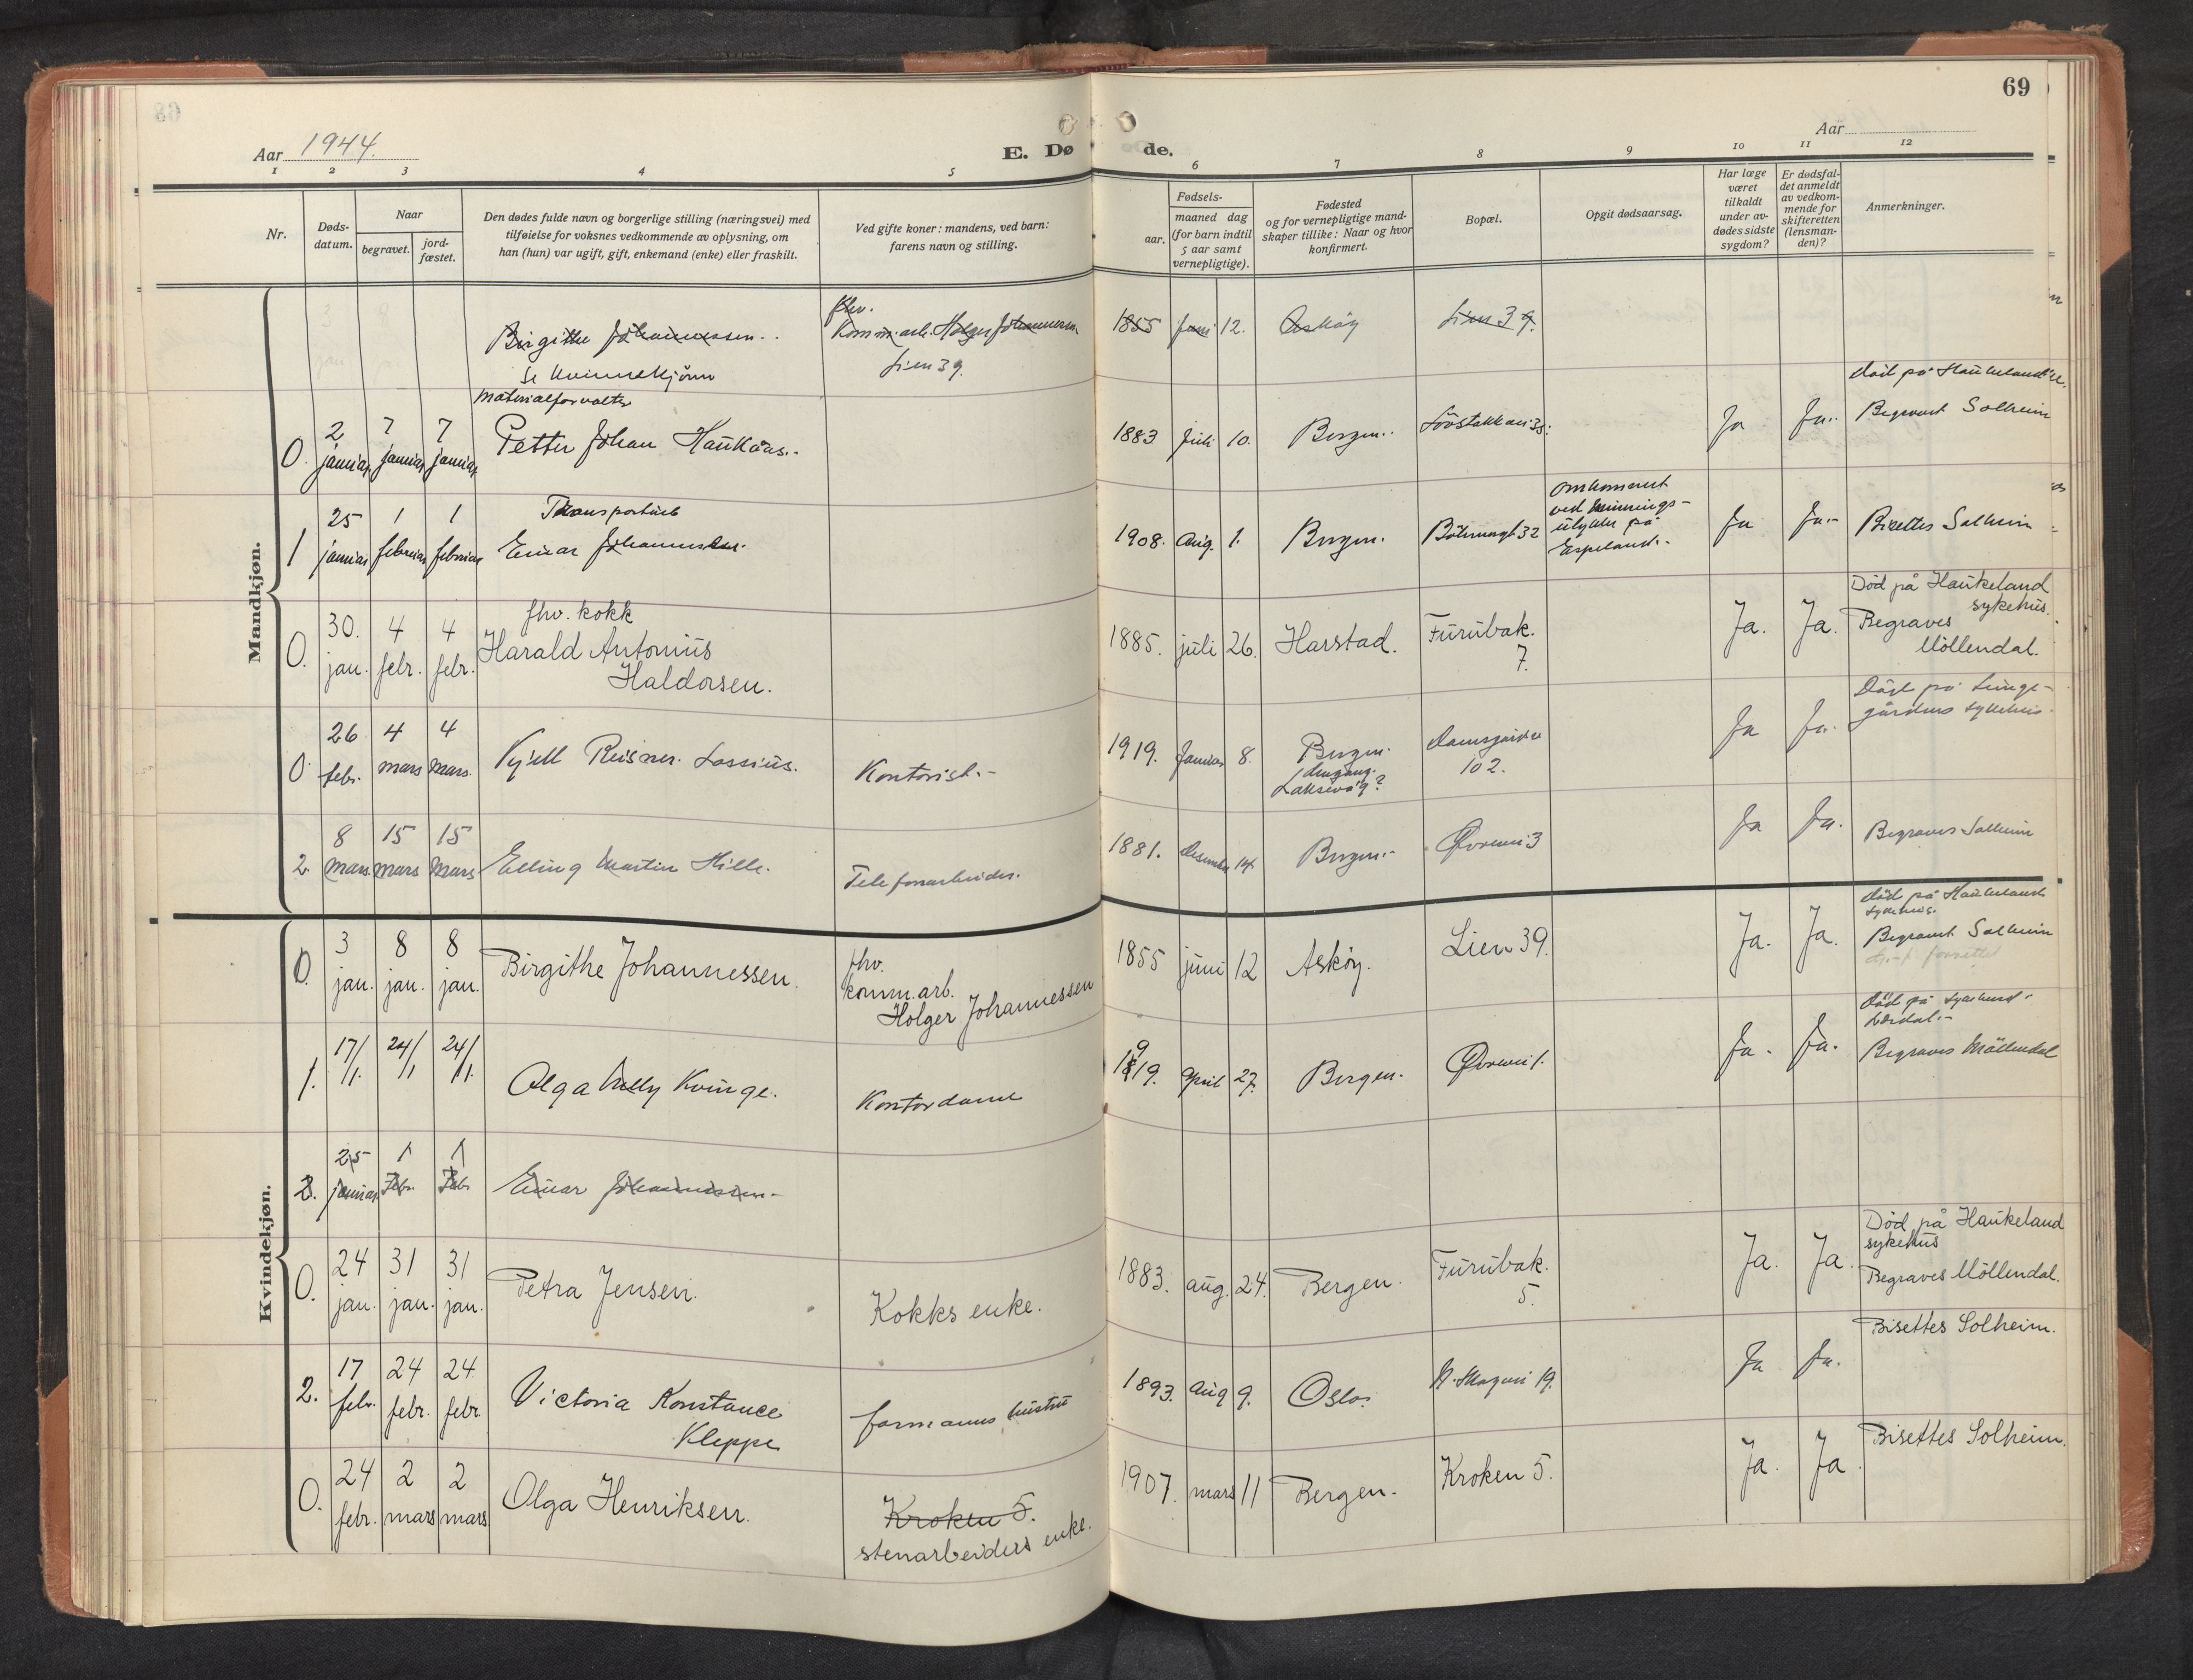 69
Aar 1944.
E. Dø
de.
Aar
1 2 3 4 5 6 7 8 9 10 11 12
Nr.
Døds-
datum.
Naar
begravet.
jord-
fæstet.
Den dødes fulde navn og borgerlige stilling (næringsvei) med
tilføielse for voksnes vedkommende av oplysning, om
han (hun) var ugift, gift, enkemand (enke) eller fraskilt.
Ved gifte koner: mandens, ved barn:
farens navn og stilling.
Fødsels-
aar.
maaned dag
(for barn indtil
5 aar samt
vernepligtige).
Fødested
og for vernepligtige mand-
skaper tillike: Naar og hvor
konfirmert.
Bopæl.
Opgit dødsaarsag.
Har læge
været
tilkaldt
under av-
dødes sidste
sygdom?
Er dødsfal-
det anmeldt
av vedkom-
mende for
skifteretten
(lensman-
den)?
Anmerkninger.
Mandkjøn.
Birgithe Johannessen.
Se Kvinnekjönn
fhv.
Komm. arb. Holger Johannessen
Lien 39.
1855 juni 12. Asköy Lien 39.
0. 2 januar 7 januar 7 januar
Materialforvalter
Petter Johan Haukaas.
1883 juli 10. Bergen. Ja Ja.
Begravet Solheim
1 25 januar 1 februar 1 februar
Einar Johannesen.
1908. Aug. 1. Bergen. 32
omkommet
ved
ulykke på
Espeland.
Ja Ja. Bisettes Solheim
0. 30. jan. 4 febr. 4 febr.
fhv. kokk
Harald Antonius
Haldorsen.
1885. juli 26. Harstad. Furubak.
7.
Ja. Ja.
Død på Haukeland
sykehus.
Begraves
Möllendal.
0 26 febr. 4 mars 4 mars.
Kjell Reisner Lossius.
Kontorist.
1919. Januar 8. Bergen.
Laksevåg?
102.
Ja Ja.
Död på Lunge-
gårdens sykehus.
2. 8 mars 15 mars 15 mars
Elling Martin Hille.
Telefonarbeider.
1881. desember 14. Bergen. Øvrevei 3
Ja Ja. Begraves Solheim
Kvindekjøn.
0. 3 jan. 8 jan. 8 jan.
Birgithe Johannessen.
fhv.
komm. arb.
Holger Johannessen
1855 juni 12 Asköy. Lien 39.
Ja. Ja.
död på Haukeland
sykehus.
Begravet Solheim
1. 17/1. 24/1 24/1.
Olga Kvinge.
Kontordame
1919. April 27. Bergen. Øvrevei 1.
Ja. Ja.
Begraves Möllendal
2. 25 januar 1 Febr. 1 Feb.
Einar Johannessen.
0. 24 jan. 31 jan. 31 jan.
Petra Jensen.
Kokks enke.
1883. aug. 24. Bergen. Furubak.
5.
Ja. Ja.
Død på Haukeland
sykehus
Begraves Möllendal.
2. 17 febr. 24 febr. 24 febr
Victoria Konstance
Kleppe
formanns hustru
1893. Aug 9. Oslo. 19.
Ja Ja.
Bisettes Solheim.
0. 24 febr. 2 mars 2 mars
Olga Henriksen.
Kroken 5.
stenarbeiders enke.
1907. mars 11 Bergen. Kroken 5.
Ja. Ja.
Bisettes Solheim.